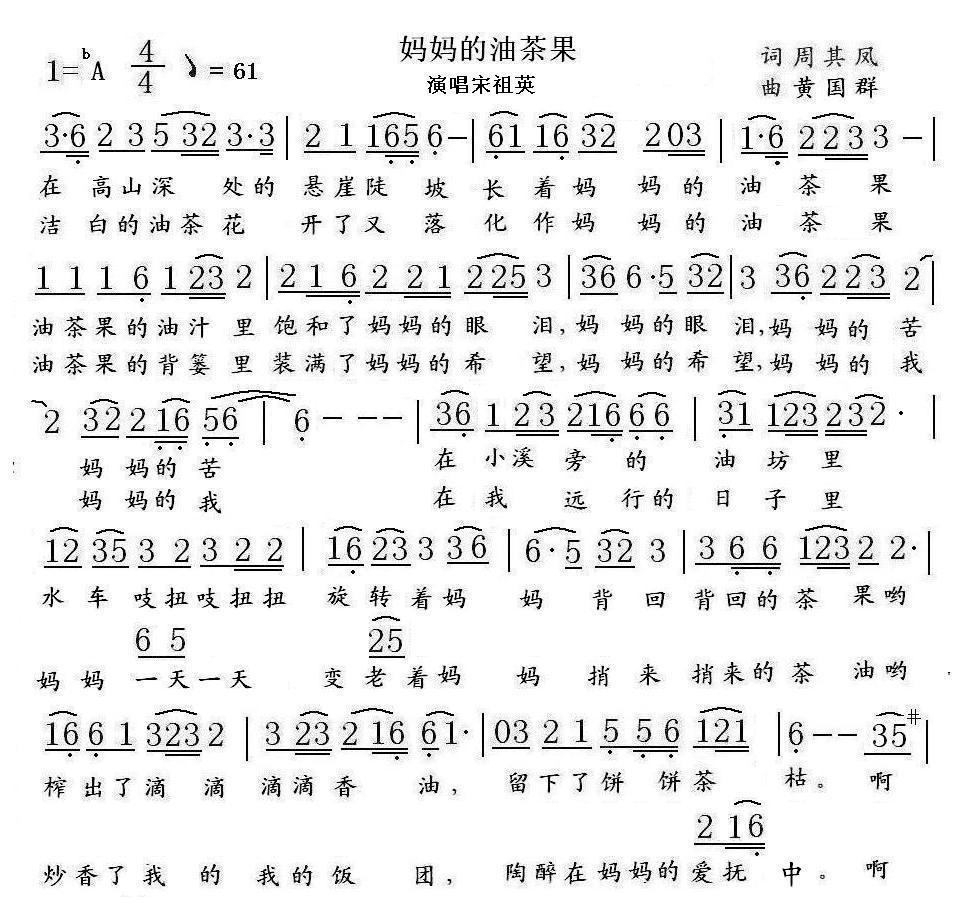 妈妈的油茶果
1=ᵇA 4/4 ♪=61
演唱宋祖英
词周其凤
曲黄国群
3·6 2 3 5 32 3·3 | 2 1 165 6– | 61 16 32 2 03 | 1·6 2 23 3 – |
在 高山深 处的 悬崖陡 坡 长 着 妈 妈的 油 茶 果
洁 白的油茶花 开了又 落 化 作 妈 妈的 油 茶 果
1 1 1 6 1 23 2 | 2 1 6 2 2 1 2 25 3 | 36 6·5 32 | 3 36 2 23 2 |
油茶果的油汁 里 饱和了妈妈的眼 泪,妈 妈的眼 泪,妈 妈的 苦
油茶果的背篓 里 装满了妈妈的希 望,妈 妈的希 望,妈 妈的 我
2 32 2 16 56 | 6 – – – | 36 1 23 216 66 | 31 123 232· |
妈 妈的 苦 在 小溪 旁 的 油 坊 里
妈 妈的 我 在 我 远 行的 日 子 里
12 35 3 2 3 2 2 | 16 23 3 36 | 6·5 32 3 | 3 6 6 123 2 2· |
水 车 吱扭吱扭扭 旋 转 着妈 妈 背 回 背回的 茶 果哟
6 5 25
妈 妈 一天一天 变 老着妈 妈 捎 来 捎来的茶 油哟
16 6 1 323 2 | 3 23 2 16 61· | 03 2 1 5 5 6 121 | 6 – – 35♯ |
榨 出了滴 滴 滴滴香 油, 留下了饼 饼茶 枯。啊
2 16
炒香了我 的 我的饭 团, 陶醉在妈妈的爱抚 中。啊